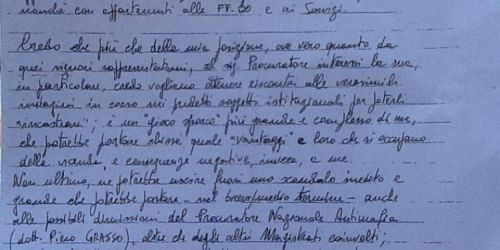 riandi con appartenenti alle FF.OO e ai Servizi.
Credo che più che della mia posizione, ove vero quanto da
quei signori rappresentatomi, al sig. Procuratore interessi la sua,
in particolare, credo vogliano ottenere riscontri alle verosimili
indagini in corso sui predetti soggetti istituzionali per poterli
"incastrare"; è un "gioco sporco" più grande e complesso di me,
che potrebbe portare chissà quale "vantaggi" a loro che si occupano
della vicenda, e conseguenze negative, invece, a me.
Non ultimo, ne potrebbe uscire fuori uno scandalo inedito e
grande che potrebbe portare - nel breve/medio termine - anche
alle possibili dimissioni del Procuratore Nazionale Antimafia
(dott. Piero GRASSO), oltre che degli altri Magistrati coinvolti;